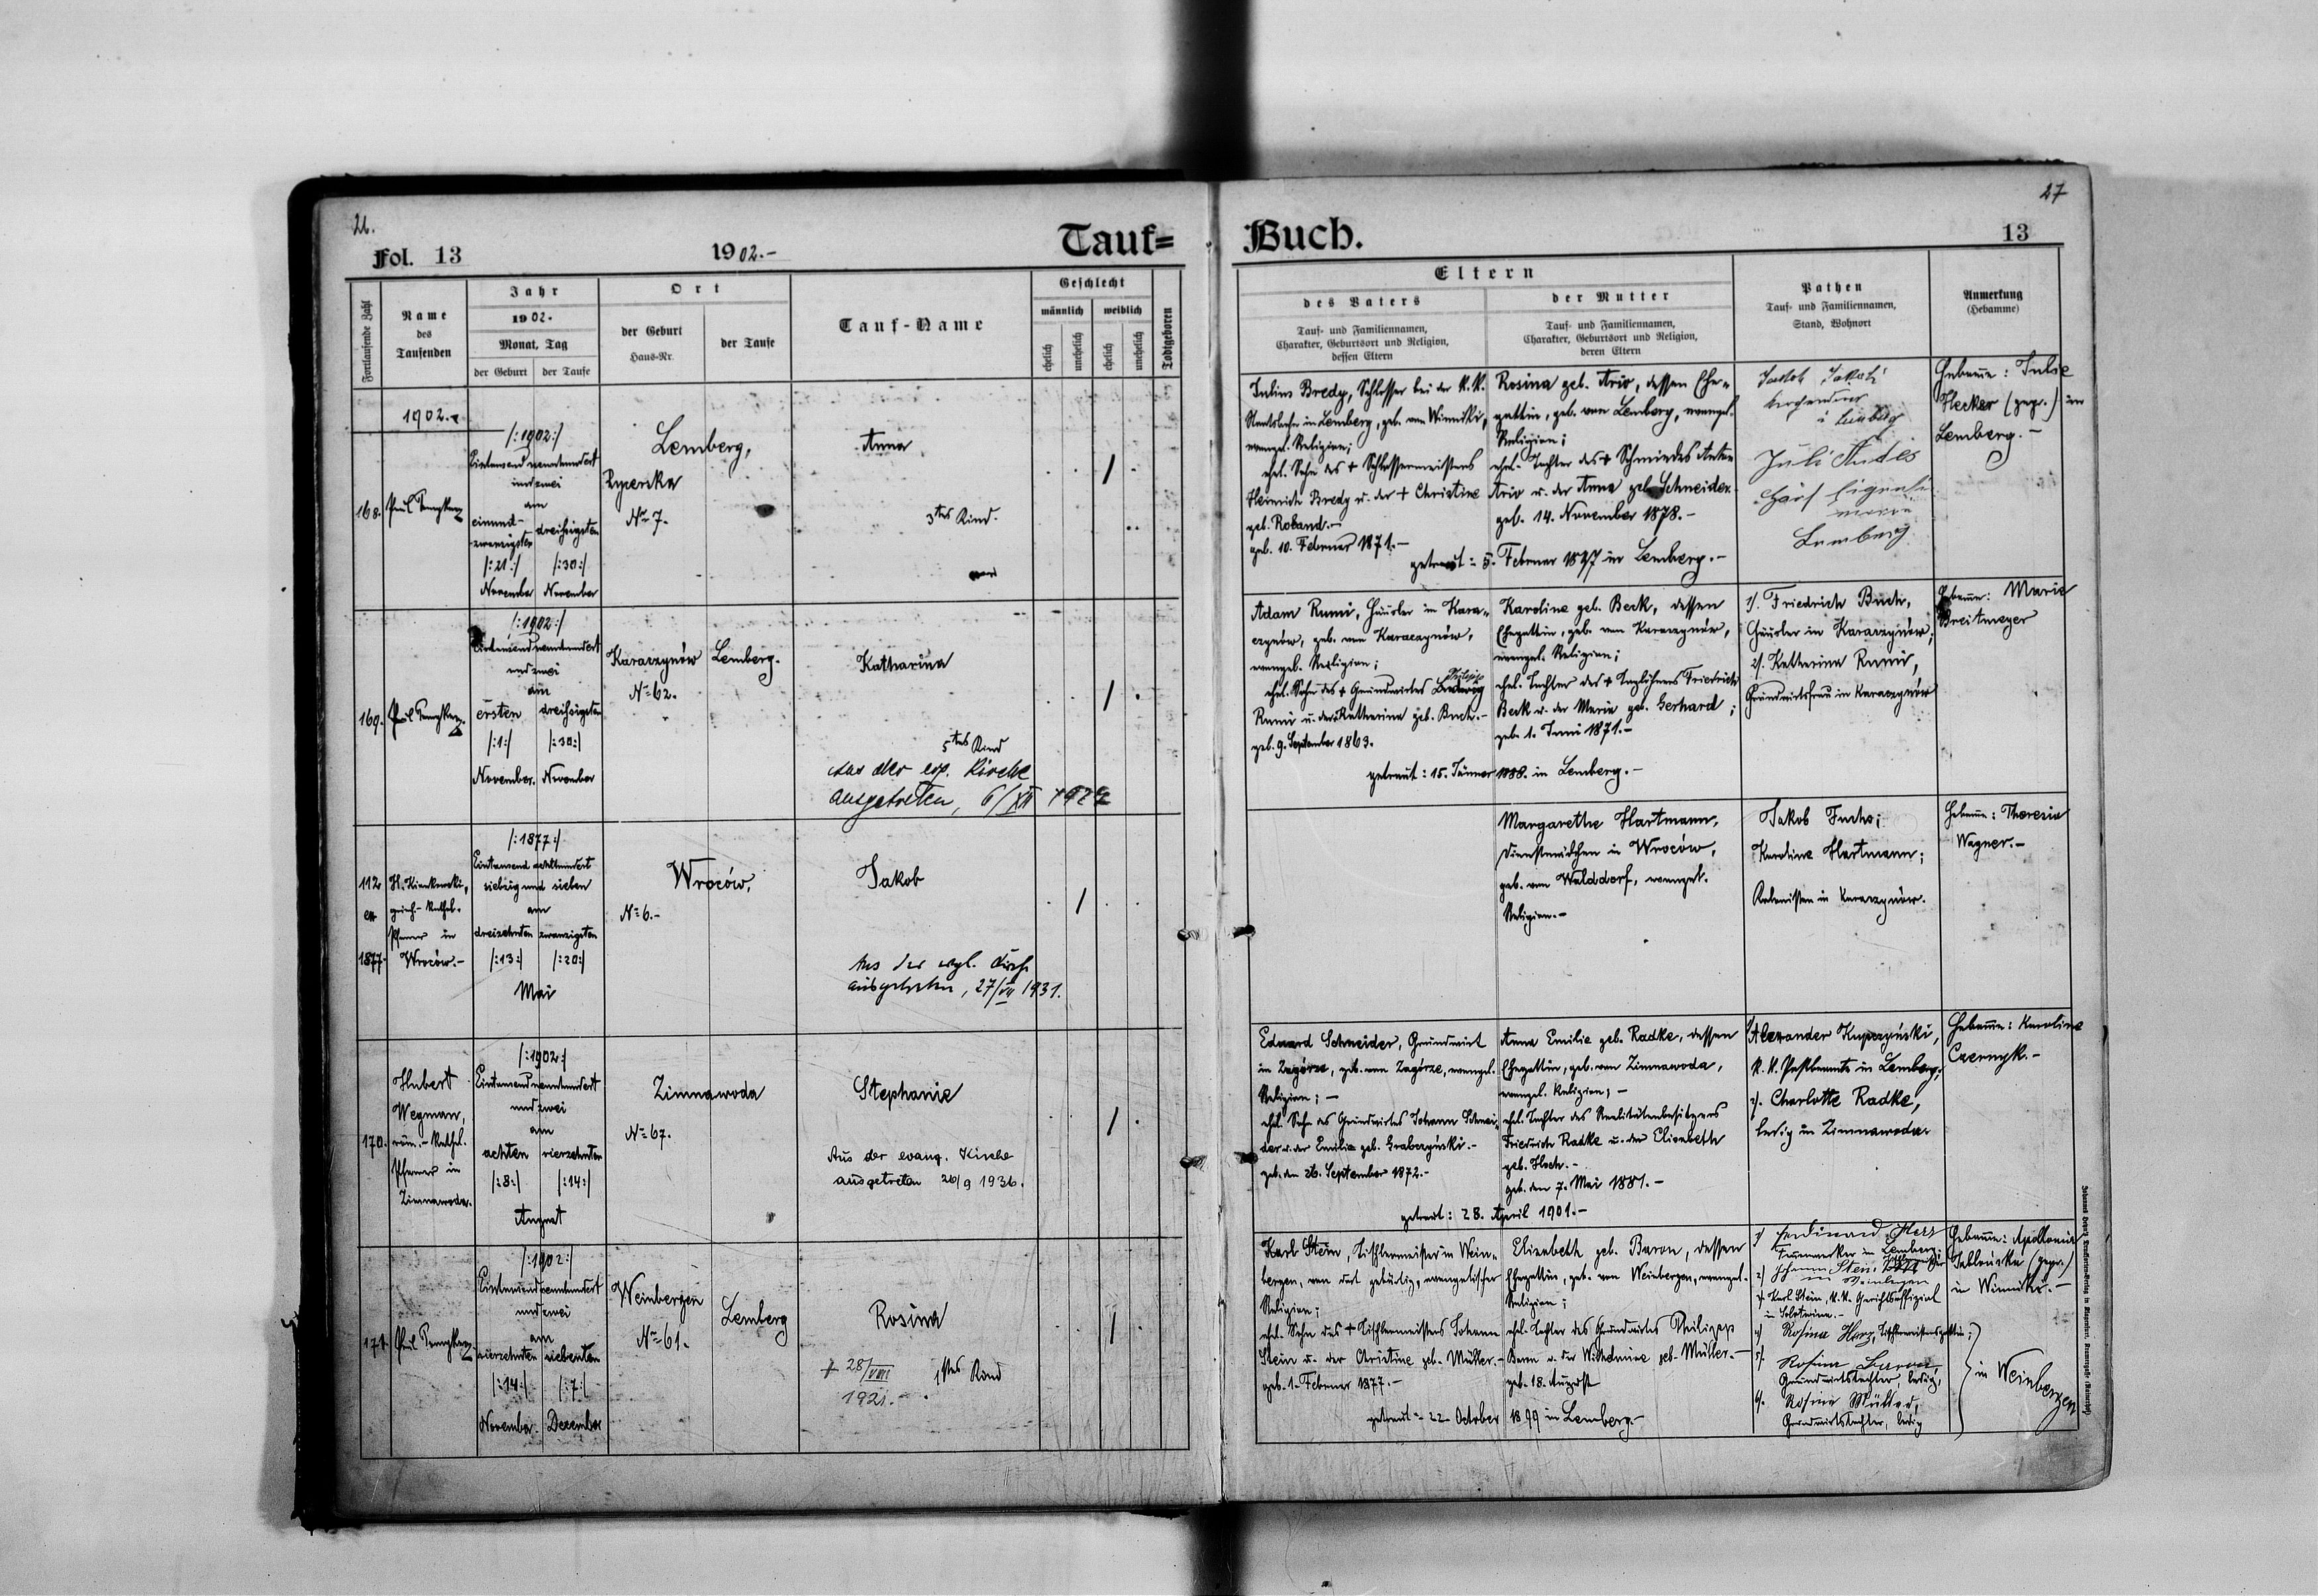 Fol. 13
1902.-
Tauf=
Fortlaufende Zahl
Name
des
Taufenden
Jahr
1902.
Monat, Tag
der Geburt
der Taufe
Ort
der Geburt
Haus-Nr.
der Taufe
Tauf-Name
Geschlecht
männlich
weiblich
ehelich
unehelich
ehelich
unehelich
Todtgeboren
1902.
168.
/:1902:/
Eintausendneunhundert
und zwei
am
einund-
zwanzigsten
dreißigsten
/:21:/
/:30:/
November
November
Lemberg,
Nr 7.
Anna
3tes Kind.
169.
/:1902:/
Eintausendneunhundert
und zwei
am
ersten
dreißigsten
/:1:/
/:30:/
November.
November
Karaczynów
Nr 62.
Lemberg.
Katharina
5tes Kind
Aus der ev. Kirche
ausgetreten, 6/XII
112
ex
1877.
griech.-kathol.
Pfarrer in
Wroców.-
/:1877:/
Eintausend achthundert
siebzig und sieben
am
dreizehnten
zwanzigsten
/:13:/
/:20:/
Mai
Wroców,
Nr 6.-
Jakob
Aus der evgl. Kirche
ausgetreten, 27/VII 1931.
170.
Hubert
Wegman,
röm.-kathol.
Pfarrer in
Zimnawoda.
/:1902:/
Eintausendneunhundert
und zwei
am
achten
vierzehnten
/:8:/
/:14:/
August
Zimnawoda
Nr 67.
Stephanie
Aus der evang. Kirche
ausgetreten 26/9 1936.
171.
/:1902:/
Eintausendneunhundert
und zwei
am
vierzehnten
siebenten
/:14:/
/:7:/
November.
December
Weinbergen
Nr 61.
Lemberg
Rosina
1tes Kind
+ 28/VIII
1921.
27
Buch.
13
Eltern
des Vaters
Tauf- und Familiennamen,
Charakter, Geburtsort und Religion,
dessen Eltern
der Mutter
Tauf- und Familiennamen,
Charakter, Geburtsort und Religion,
deren Eltern
Pathen
Tauf- und Familiennamen,
Stand, Wohnort
Anmerkung
(Hebamme)
Julius Bredy, Schlosser bei der K.K.
Staatsbahn in Lemberg, geb. von Winniki,
evangel. Religion;
ehel. Sohn des + Schlossermeisters
Heinrich Bredy u. der + Christine
geb. Roland.-
geb. 10. Februar 1871.-
Rosina geb. Ario, dessen Ehe-
gattin, geb. von Lemberg, evangel.
Religion;
ehel. Tochter des + Schmiedes Anton
Ario u. der Anna geb. Schneider.
geb. 14. November 1878.-
getraut: 5. Februar 1897 in Lemberg.-
Lemberg
Hebamme: Julie
Hecker (gepr.) in
Lemberg.-
Adam Rumi, Häusler in Kara-
czynów, geb. von Karaczynów,
evangel. Religion;
ehel. Sohn des + Grundwirtes Ludwig
Philipp
Rumi u. der Katharina geb. Buch.-
geb. 9. September 1863.
Karoline geb. Beck, dessen
Ehegattin, geb. von Karaczynów,
evangel. Religion;
ehel. Tochter des + Taglöhners Friedrich
Beck u. der Maria geb. Gerhard;
geb. 1. Juni 1871.-
getraut: 15. Jänner 1888. in Lemberg.-
1/. Friedrich Buch,
Häusler in Karaczynów;
2/. Katharina Rumi,
Grundwirtsfrau in Karaczynów
Hebamme: Marie
Breitmeyer
Margarethe Hartmann,
Dienstmädchen in Wroców,
geb. von Walddorf, evangel.
Religion.-
Jakob Fuchs;
Karoline Hartmann;
Kolonisten in Karaczynów.
Hebamme: Theresia
Wagner.-
Eduard Schneider, Grundwirt
in Zagórze, geb. von Zagórze, evangel.
Religion;-
ehel. Sohn des Grundwirtes Johann Schnei-
der u. der Emilia geb. Grabczyński.-
geb. den 26. September 1872.-
Anna Emilie geb. Radke, dessen
Ehegattin, geb. von Zimnawoda,
evangel. Religion;-
ehel. Tochter des Realitätenbesitzers
Friedrich Radke u. der Elisabeth
geb. Hoch.-
geb. den 7. Mai 1881.-
getraut: 28. April 1901.-
1/. Alexander Kupczyński,
K.K. Postbeamte in Lemberg;
2/. Charlotte Radke,
ledig in Zimnawoda
Hebamme: Karoline
Czernyk.-
Karl Stein, Tischlermeister in Wein-
bergen, von dort gebürtig, evangelischer
Religion;
ehel. Sohn des + Tischlermeisters Johann
Stein u. der Christine geb. Müller.-
geb. 1. Februar 1877.-
Elisabeth geb. Baron, dessen
Ehegattin, geb. von Weinbergen, evangel.
Religion;
ehel. Tochter des Grundwirtes Philipp
Baron u. der Wilhelmine geb. Müller.-
geb. 18. August
getraut: 22. October 1899 in Lemberg.-
1/ Ferdinand Herz
in Lemberg;
2/ Johann Stein
in Weinbergen
3/. Karl Stein, K.K. Gerichtsoffizial
in Solotwina.-
4/ Rosina Herz, Tischlermeistersgattin;
5/. Rosina Baron,
Grundwirtstochter, ledig,
6/. Rosina Müller,
Grundwirtstochter, ledig
in Weinbergen
Hebamme: Apollonia
Jablońska (gepr.)
in Winniki.-